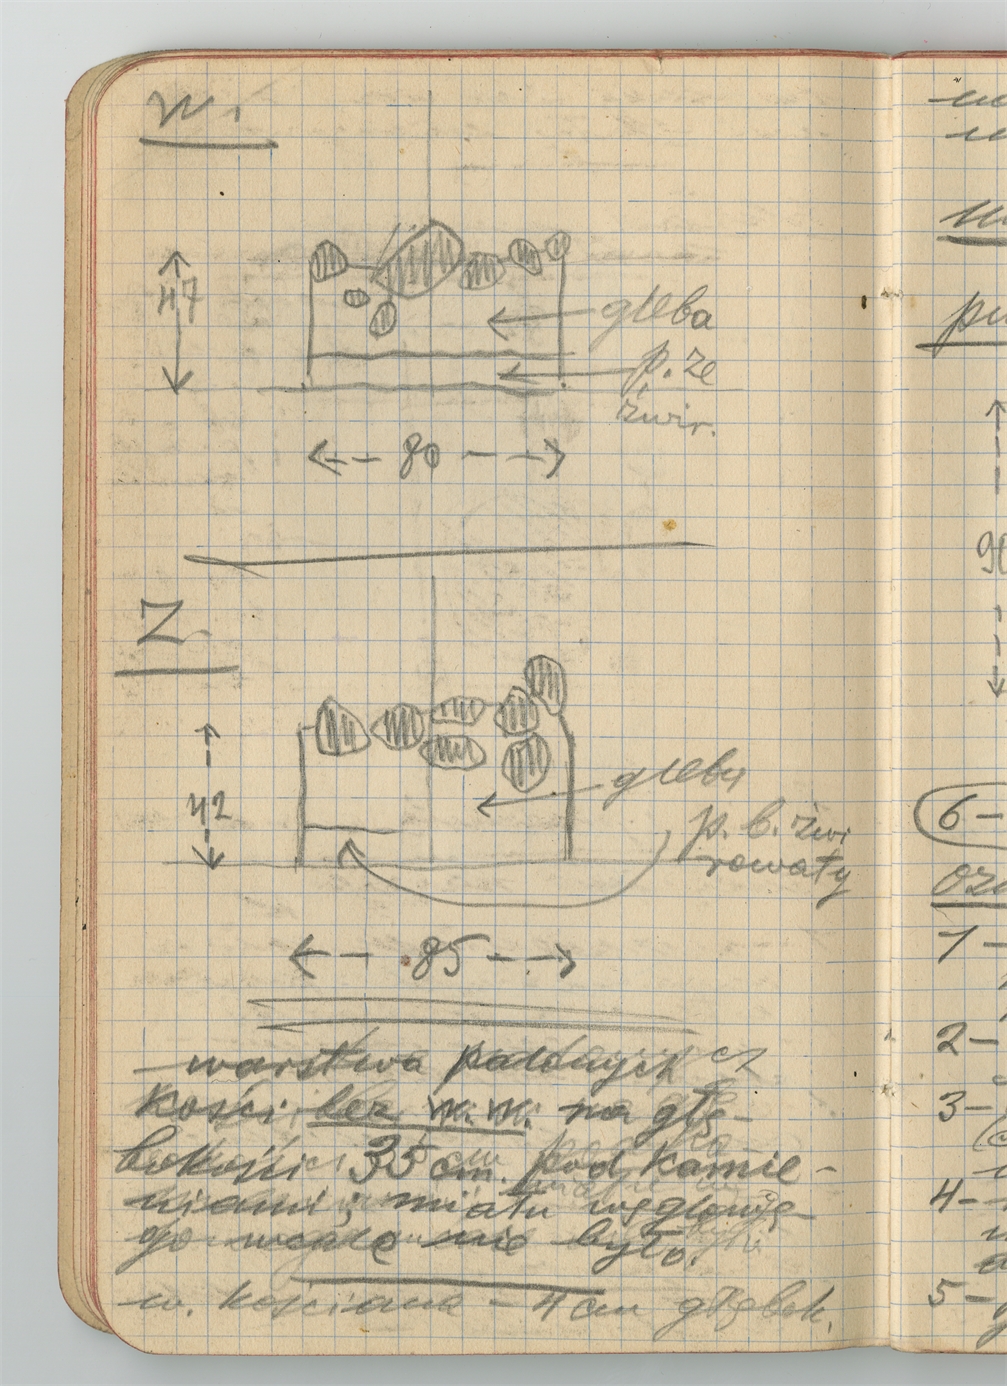 W.
47
gleba
p. ze
żwir.
80
Z.
42
gleby
p. b. żwi
rowaty
85
- warstwa palonych cz
kości bez w. w. na głę-
bokości 35 cm. pod kamie-
niami; miału węglowe-
go wcale nie było.
w. kościana - 4 cm głębok.
pu
90
6 -
1 -
2 -
3 -
4 -
5 -